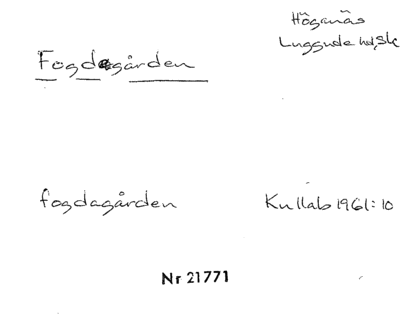 Höganäs
Luggude hd, Sk
Fogdegården
fogdagården
Kullab 1961:10
Nr 21771